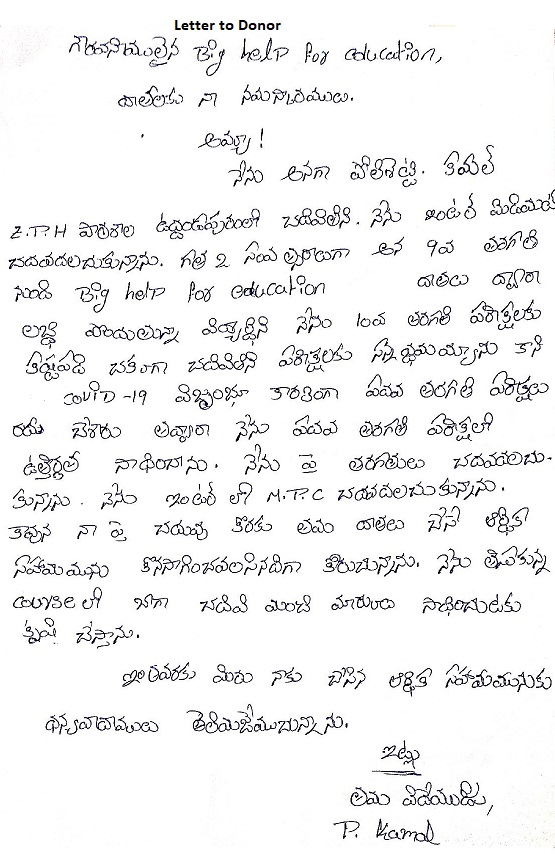 Letter to Donor
గౌరవనీయులైన Big help for education,
దాతలకు నా నమస్కారములు.
అయ్యా!
నేను అనగా పోలిశెట్టి. కమల్
Z.P.H పాఠశాల ఉద్దండపురంలో చదివితిని. నేను ఇంటర్ మీడియట్
చదవదలచుకున్నాను. గత 2 సంవత్సరాలుగా అన 9వ తరగతి
నుండి Big help for education దాతలు ద్వారా
లబ్ది పొందుతున్నా విద్యార్థిని నేను 10వ తరగతి పరీక్షలకు
కష్టపడి చదివితిని పరీక్షలకు సన్నిద్ధమయ్యాను కాని
covid-19 విజృంభణ కారణంగా పదవ తరగతి పరీక్షలు
రద్దు చేశారు తద్వారా నేను పదవ తరగతి పరీక్షలో
ఉత్తీర్ణత సాధించాను. నేను పై తరగతులు చదవదలచు-
కున్నాను. నేను ఇంటర్ లో M.P.C చదవదలచుకున్నాను.
కావున నా పై చదువు కొరకు తమ దాతలు చేసే ఆర్థిక
సహాయమును కొనసాగించవలసినదిగా కోరుచున్నాను. నేను తీసుకున్న
course లో బాగా చదివి మంచి మార్కులు సాధించుటకు
కృషి చేస్తాను.
ఇంతవరకు మీరు నాకు చేసిన ఆర్థిక సహాయమునకు
ధన్యవాదములు తెలియజేయుచున్నాను.
ఇట్లు
తమ విధేయుడు,
P. Kamal